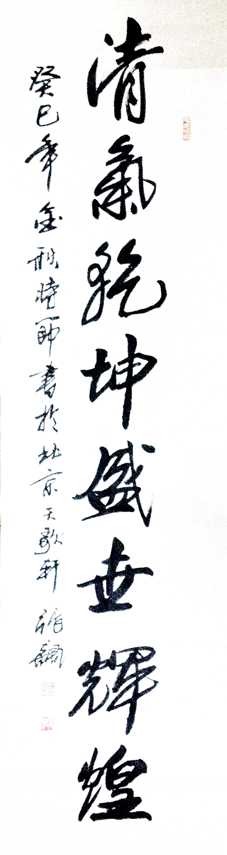 清氣乾坤盛世輝煌
癸巳年金秋時節書於北京天歌軒